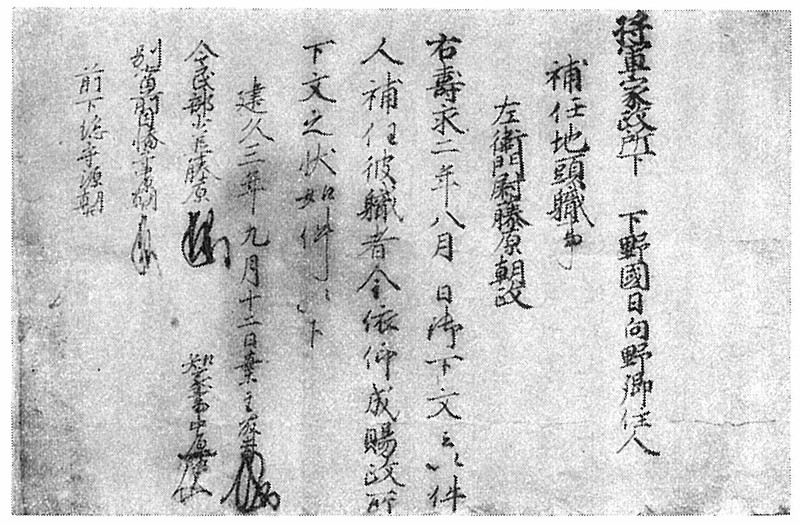 將軍家政所下　下野國日向野郷住人
補任地頭職事
左衛門尉藤原朝政
右壽永二年八月　日御下文云以件
人補任彼職者今依仰成賜政所
下文之状如件以下
建久三年九月十二日案主藤井
令民部少丞藤原
知家事中原
別當前因幡守中原朝臣
前下総守源朝臣